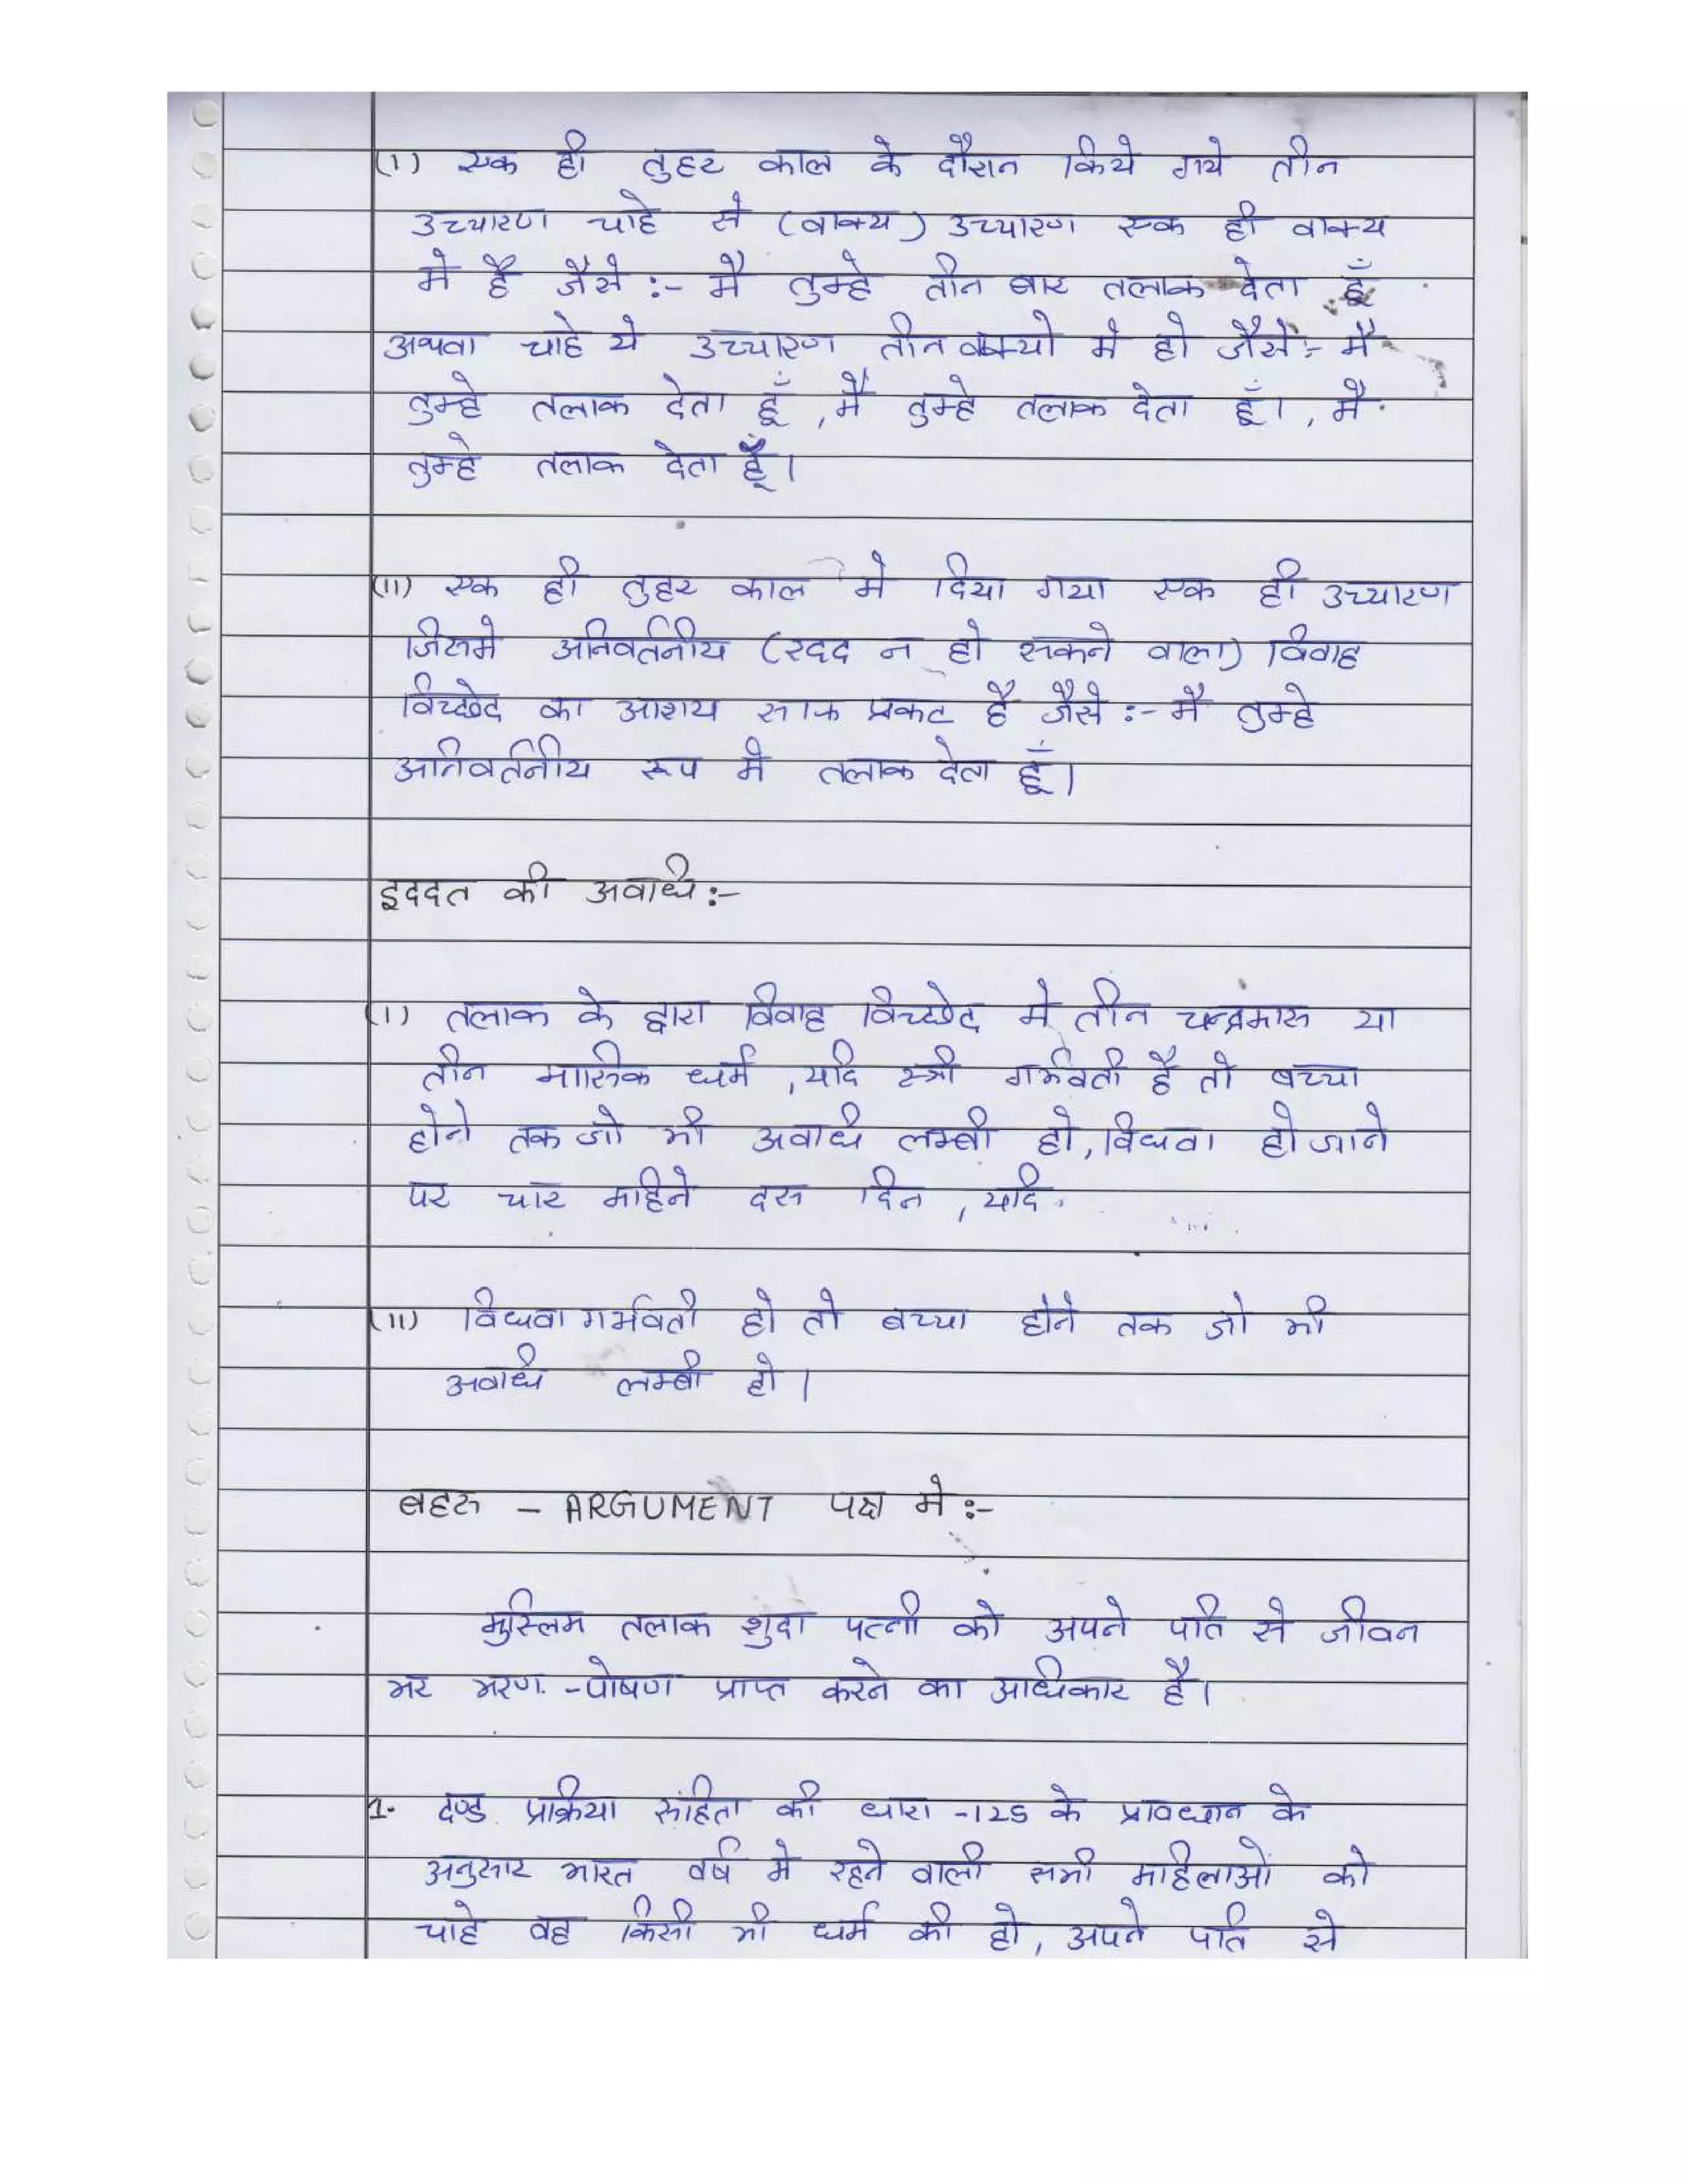 (1) एक ही तुहर काल के दौरान किये गये तीन
उच्चारण चाहे से (वाक्य) उच्चारण एक ही वाक्य
मे है जैसे :- मै तुम्हे तीन बार तलाक देता हूँ
अथवा चाहे ये उच्चारण तीन वाक्यो मे हो जैसे :- मै
तुम्हे तलाक देता हूँ , मै तुम्हे तलाक देता हूँ। , मै
तुम्हे तलाक देता हूँ।
(11) एक ही तुहर काल मे दिया गया एक ही उच्चारण
जिसमे अनिवर्तनीय (रदद न हो सकने वाला) विवाह
विच्छेद का आशय साफ प्रकट है जैसे :- मै तुम्हे
अनिवर्तनीय रूप मे तलाक देता हूँ।
इददत की अवधि :-
(1) तलाक के द्वारा विवाह विच्छेद मे तीन चन्द्रमास या
तीन मासिक धर्म , यदि स्त्री गर्भवती है तो बच्चा
होने तक जो भी अवधि लम्बी हो, विधवा हो जाने
पर चार महिने दस दिन , यदि
(11) विधवा गर्भवती हो तो बच्चा होने तक जो भी
अवधि लम्बी हो।
बहस - ARGUMENT पक्ष मे :-
मुस्लिम तलाक शुदा पत्नी को अपने पति से जीवन
भर भरण -पोषण प्राप्त करने का अधिकार है।
1. दण्ड प्रक्रिया संहिता की धारा -125 के प्रावधान के
अनुसार भारत वर्ष मे रहने वाली सभी महिलाओं को
चाहे वह किसी भी धर्म की हो, अपने पति से